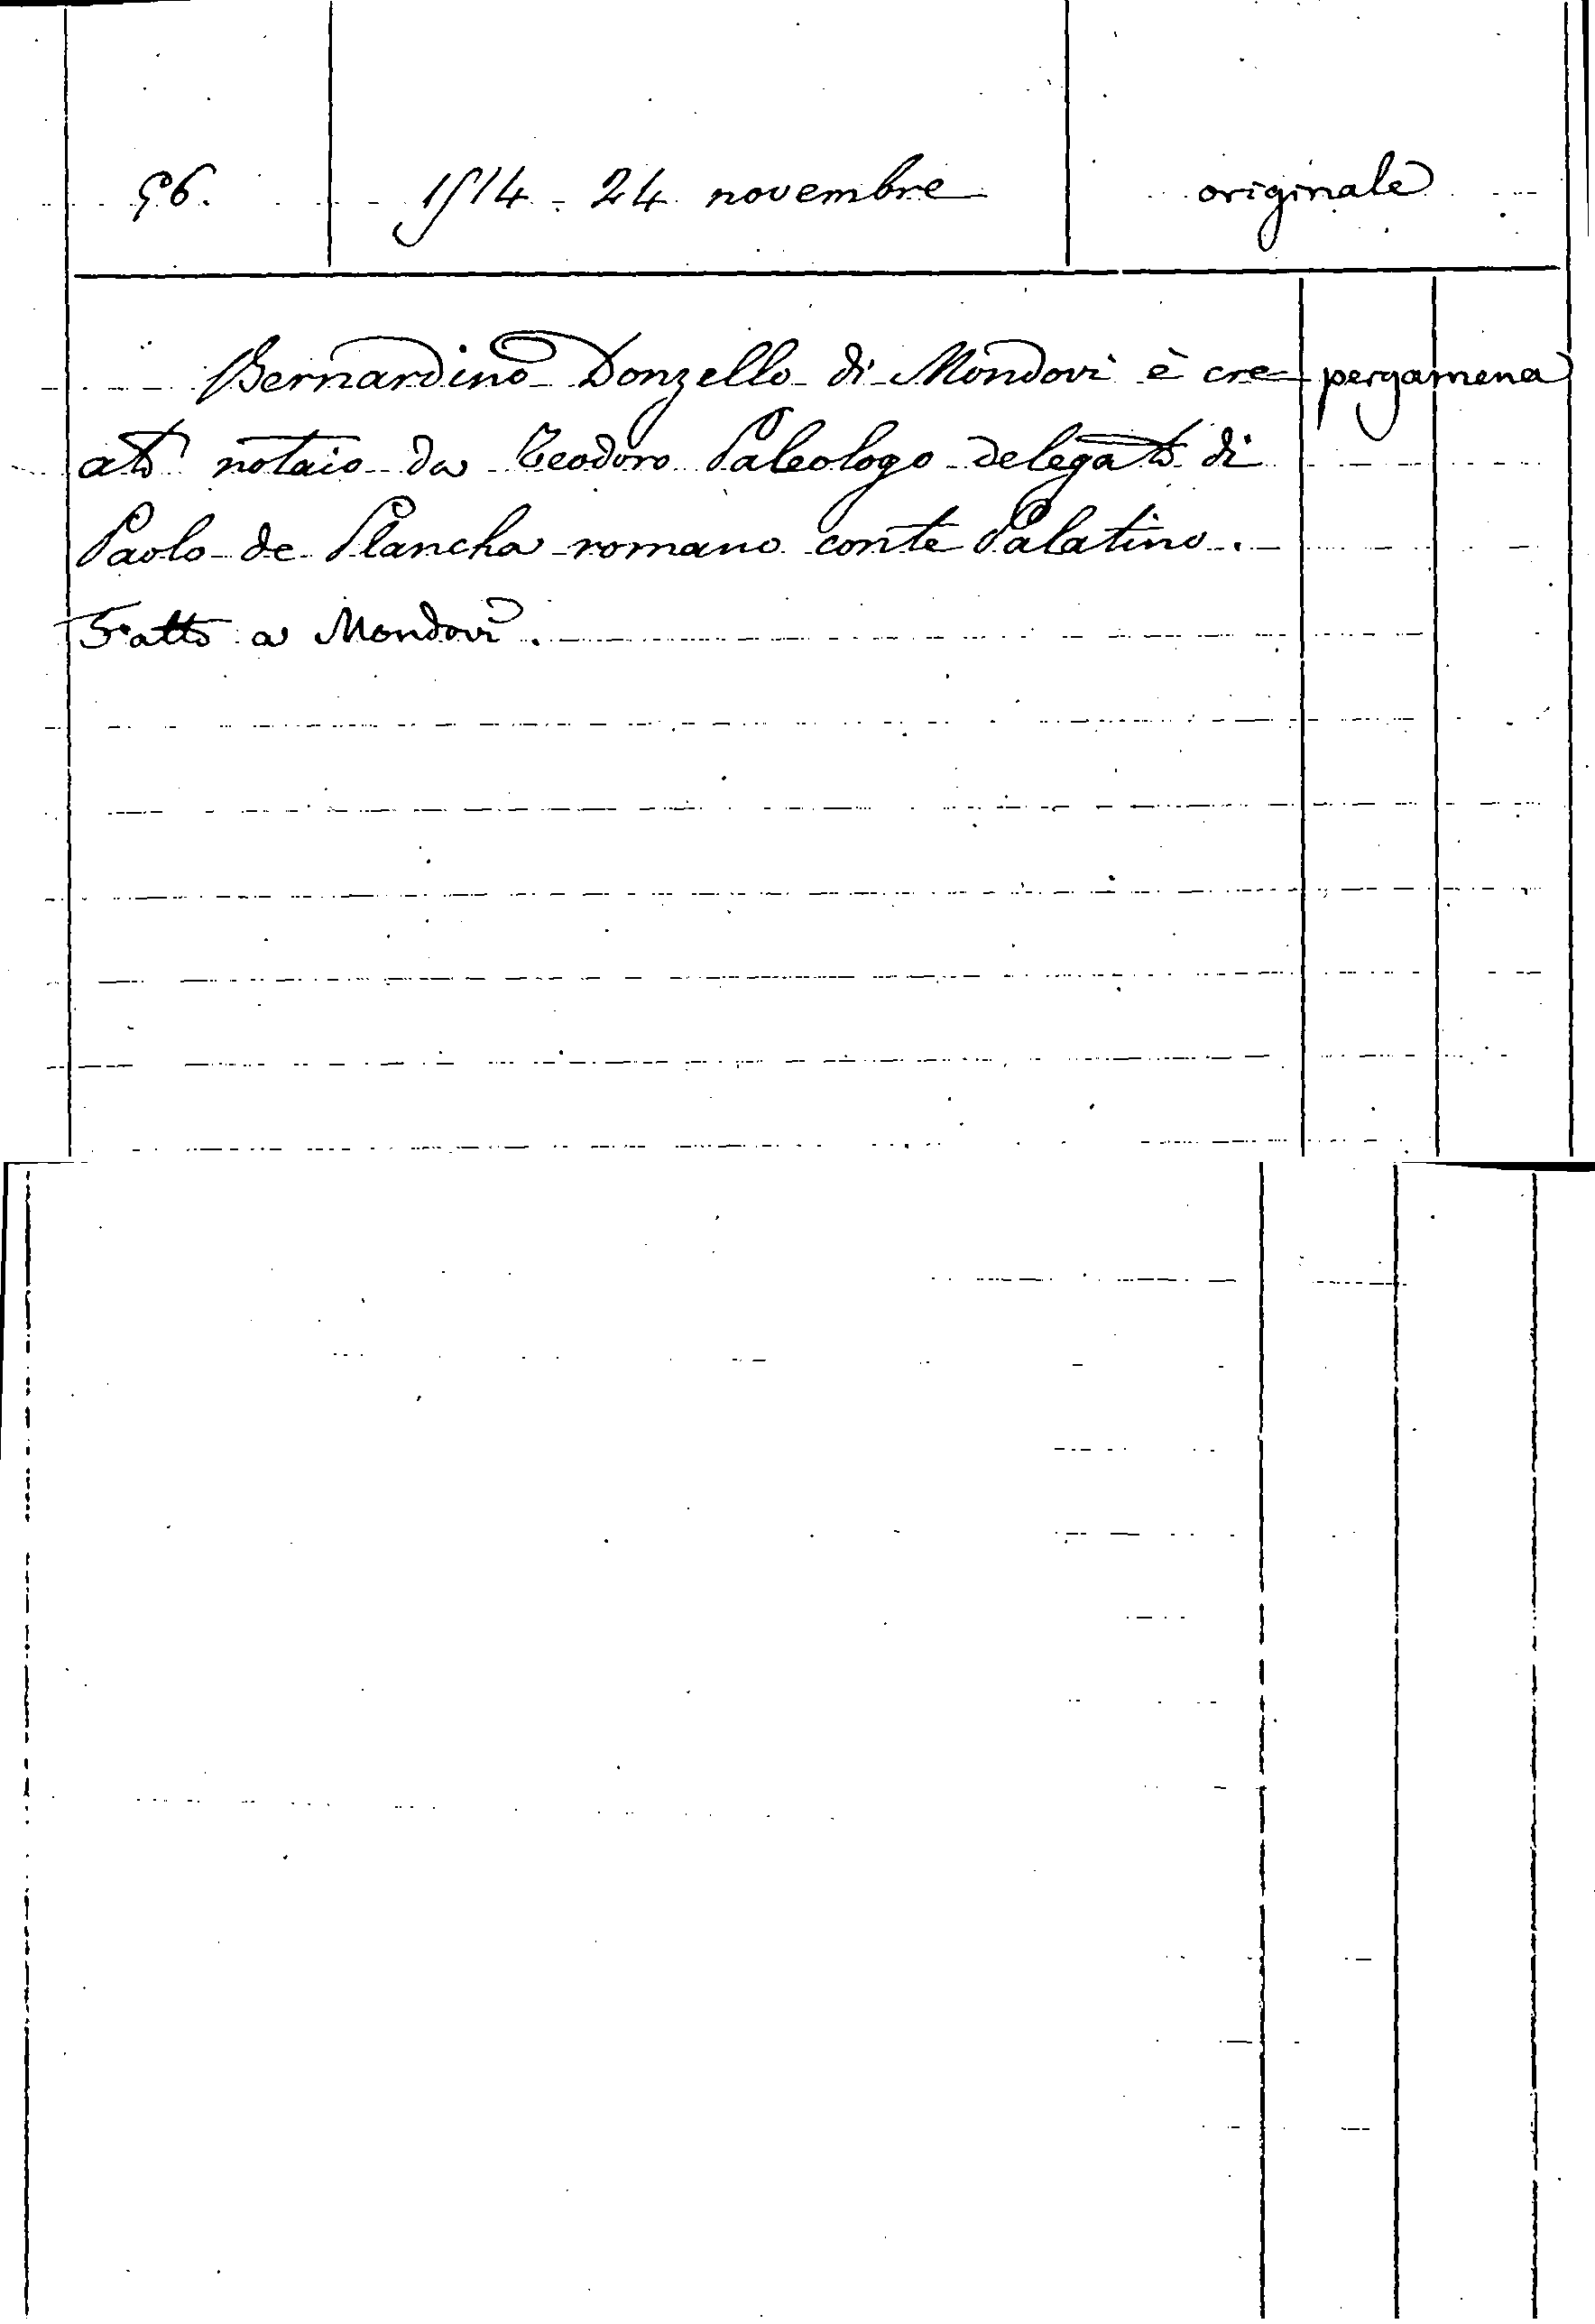 56. 1514 - 24 novembre originale
Bernardino Donzello di Mondovì è cre pergamena
ato notaio da Teodoro Paleologo delegato di
Paolo de Plancha romano conte Palatino.
Fatto a Mondovì.